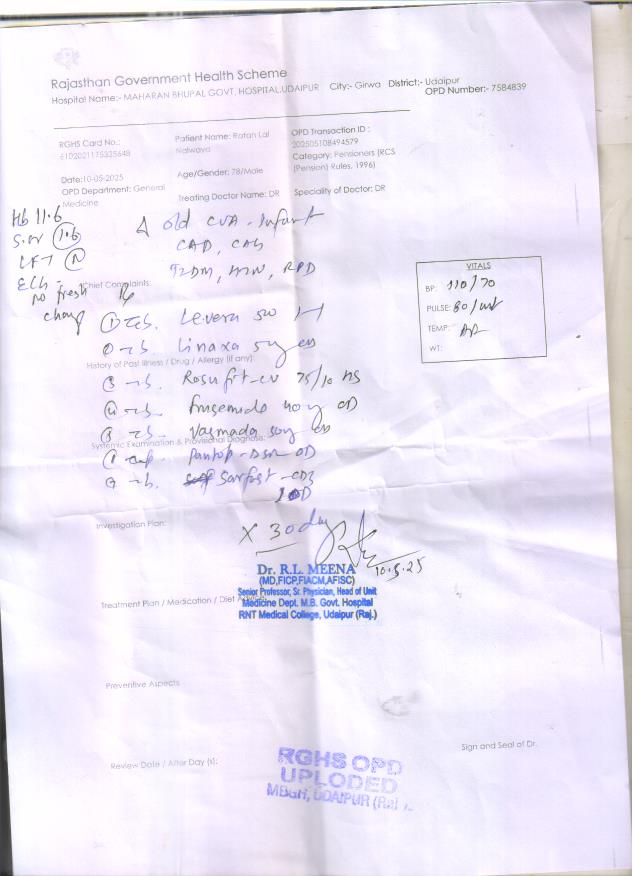 Rajasthan Government Health Scheme
Hospital Name:- MAHARAN BHUPAL GOVT. HOSPITAL,UDAIPUR City:- Girwa District:- Udaipur
OPD Number:- 7584839
RGHS Card No.:
6102021175335648
Patient Name: Ratan Lal
Nalwaya
OPD Transaction ID :
202505108494579
Category: Pensioners (RCS
(Pension) Rules, 1996)
Date:10-05-2025
OPD Department: General
Medicine
Age/Gender: 78/Male
Treating Doctor Name: DR
Speciality of Doctor: DR
Hb 11.6
S.cr 1.6
LFT N
ECG
no fresh
chang
old CVA - Infarct
CAD,
T2DM, HTN,
VITALS
BP: 110/70
PULSE: 80/
TEMP:
WT:
Chief Complaints:
① Tab. Levera 500
② Tab. Linaxa 5mg OD
History of Past Illness / Drug / Allergy (if any):
③ Tab. Rosufit-CV 75/10 HS
④ Tab. Frusemide 40mg OD
⑤ Tab. Vasmada
Systemic Examination & Provisional Diagnosis:
Cap. Pantop-DSR OD
Tab.
1 OD
Investigation Plan:
X 30 day
10.5.25
Dr. R.L. MEENA
(MD,FICP,FIACM,AFISC)
Senior Professor, Sr. Physician, Head of Unit
Medicine Dept. M.B. Govt. Hospital
RNT Medical College, Udaipur (Raj.)
Treatment Plan / Medication / Diet
Preventive Aspects
Sign and Seal of Dr.
Review Date / After Day (s):
RGHS OPD
UPLODED
MBGH, UDAIPUR (Raj.)